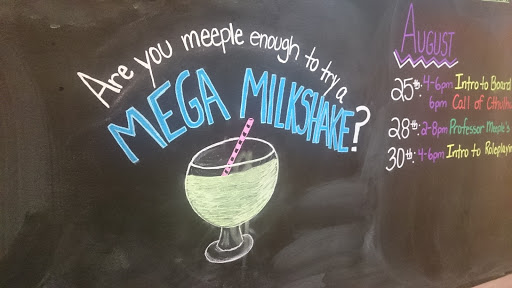 Are you meeple enough to try a
MEGA MILKSHAKE?
AUGUST
25th: 4-6pm Intro to Board
6pm Call of Cthulhu
28th: 2-8pm Professor Meeple's
30th: 4-6pm Intro to Roleplayin